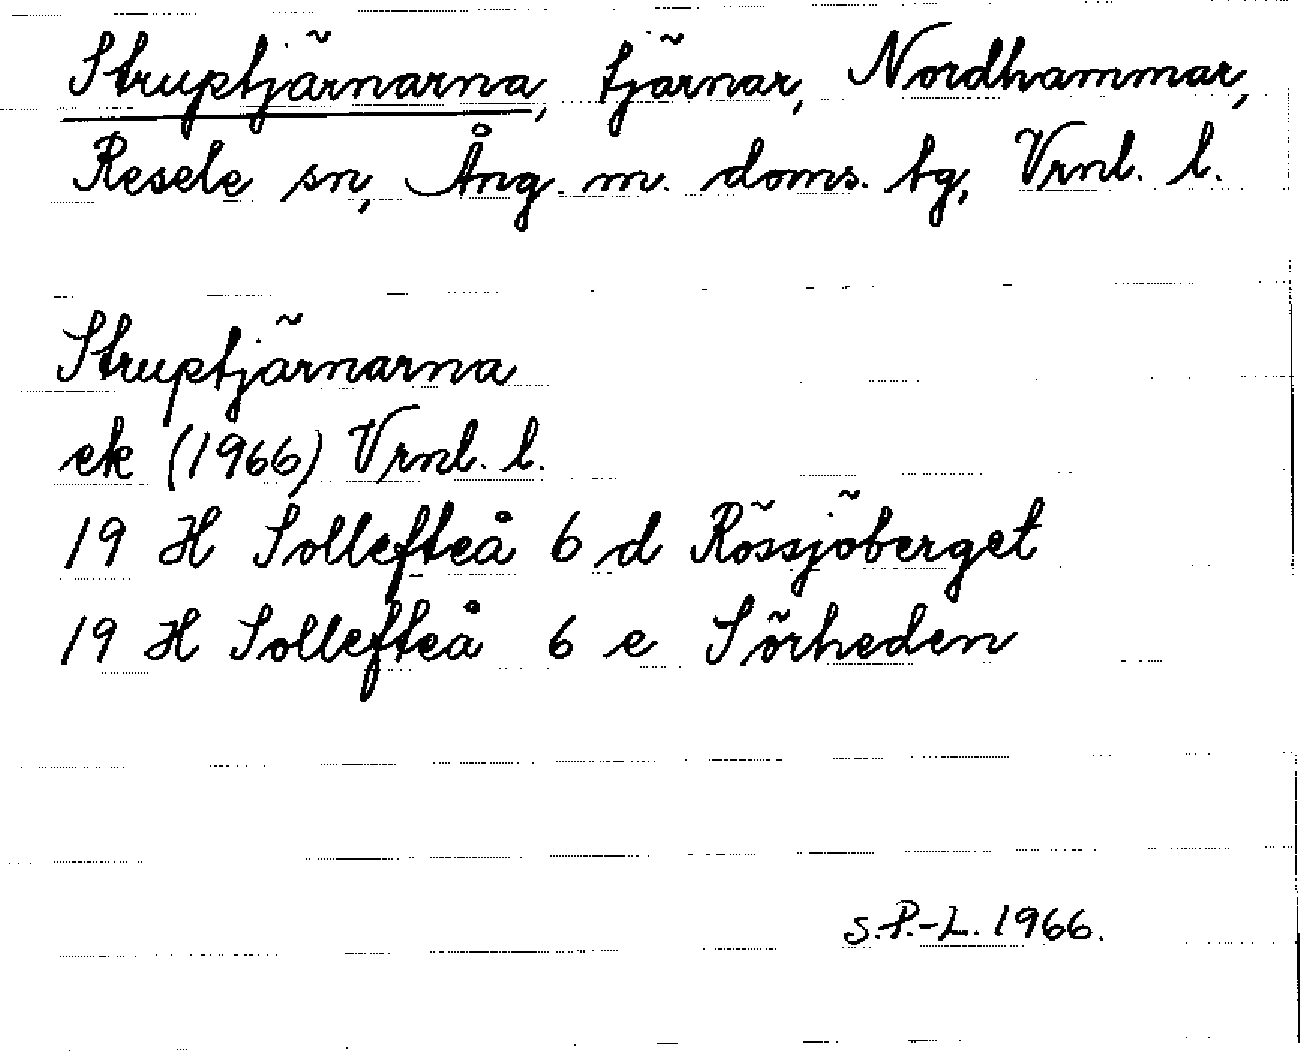 Struptjärnarna, tjärnar, Nordhammar,
Resele sn, Ång. m. doms. tg, Vrnl. l.
Struptjärnarna
ek (1966) Vrnl. l.
19 H Sollefteå 6 d Rössjöberget
19 H Sollefteå 6 e Sörheden
S.P.-L. 1966.